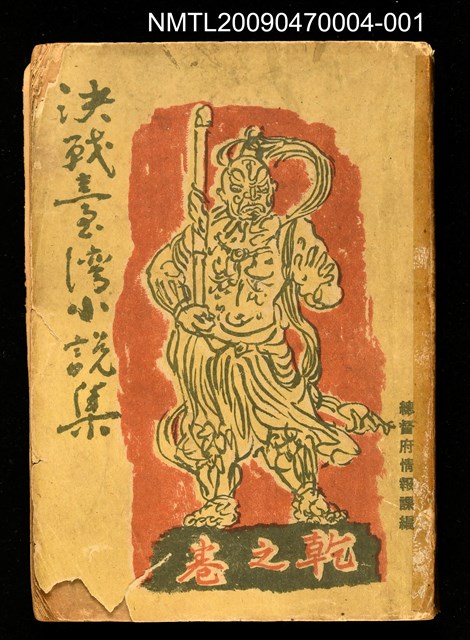 NMTL20090470004-001
決戰臺灣小説集
總督府情報課編
乾之卷